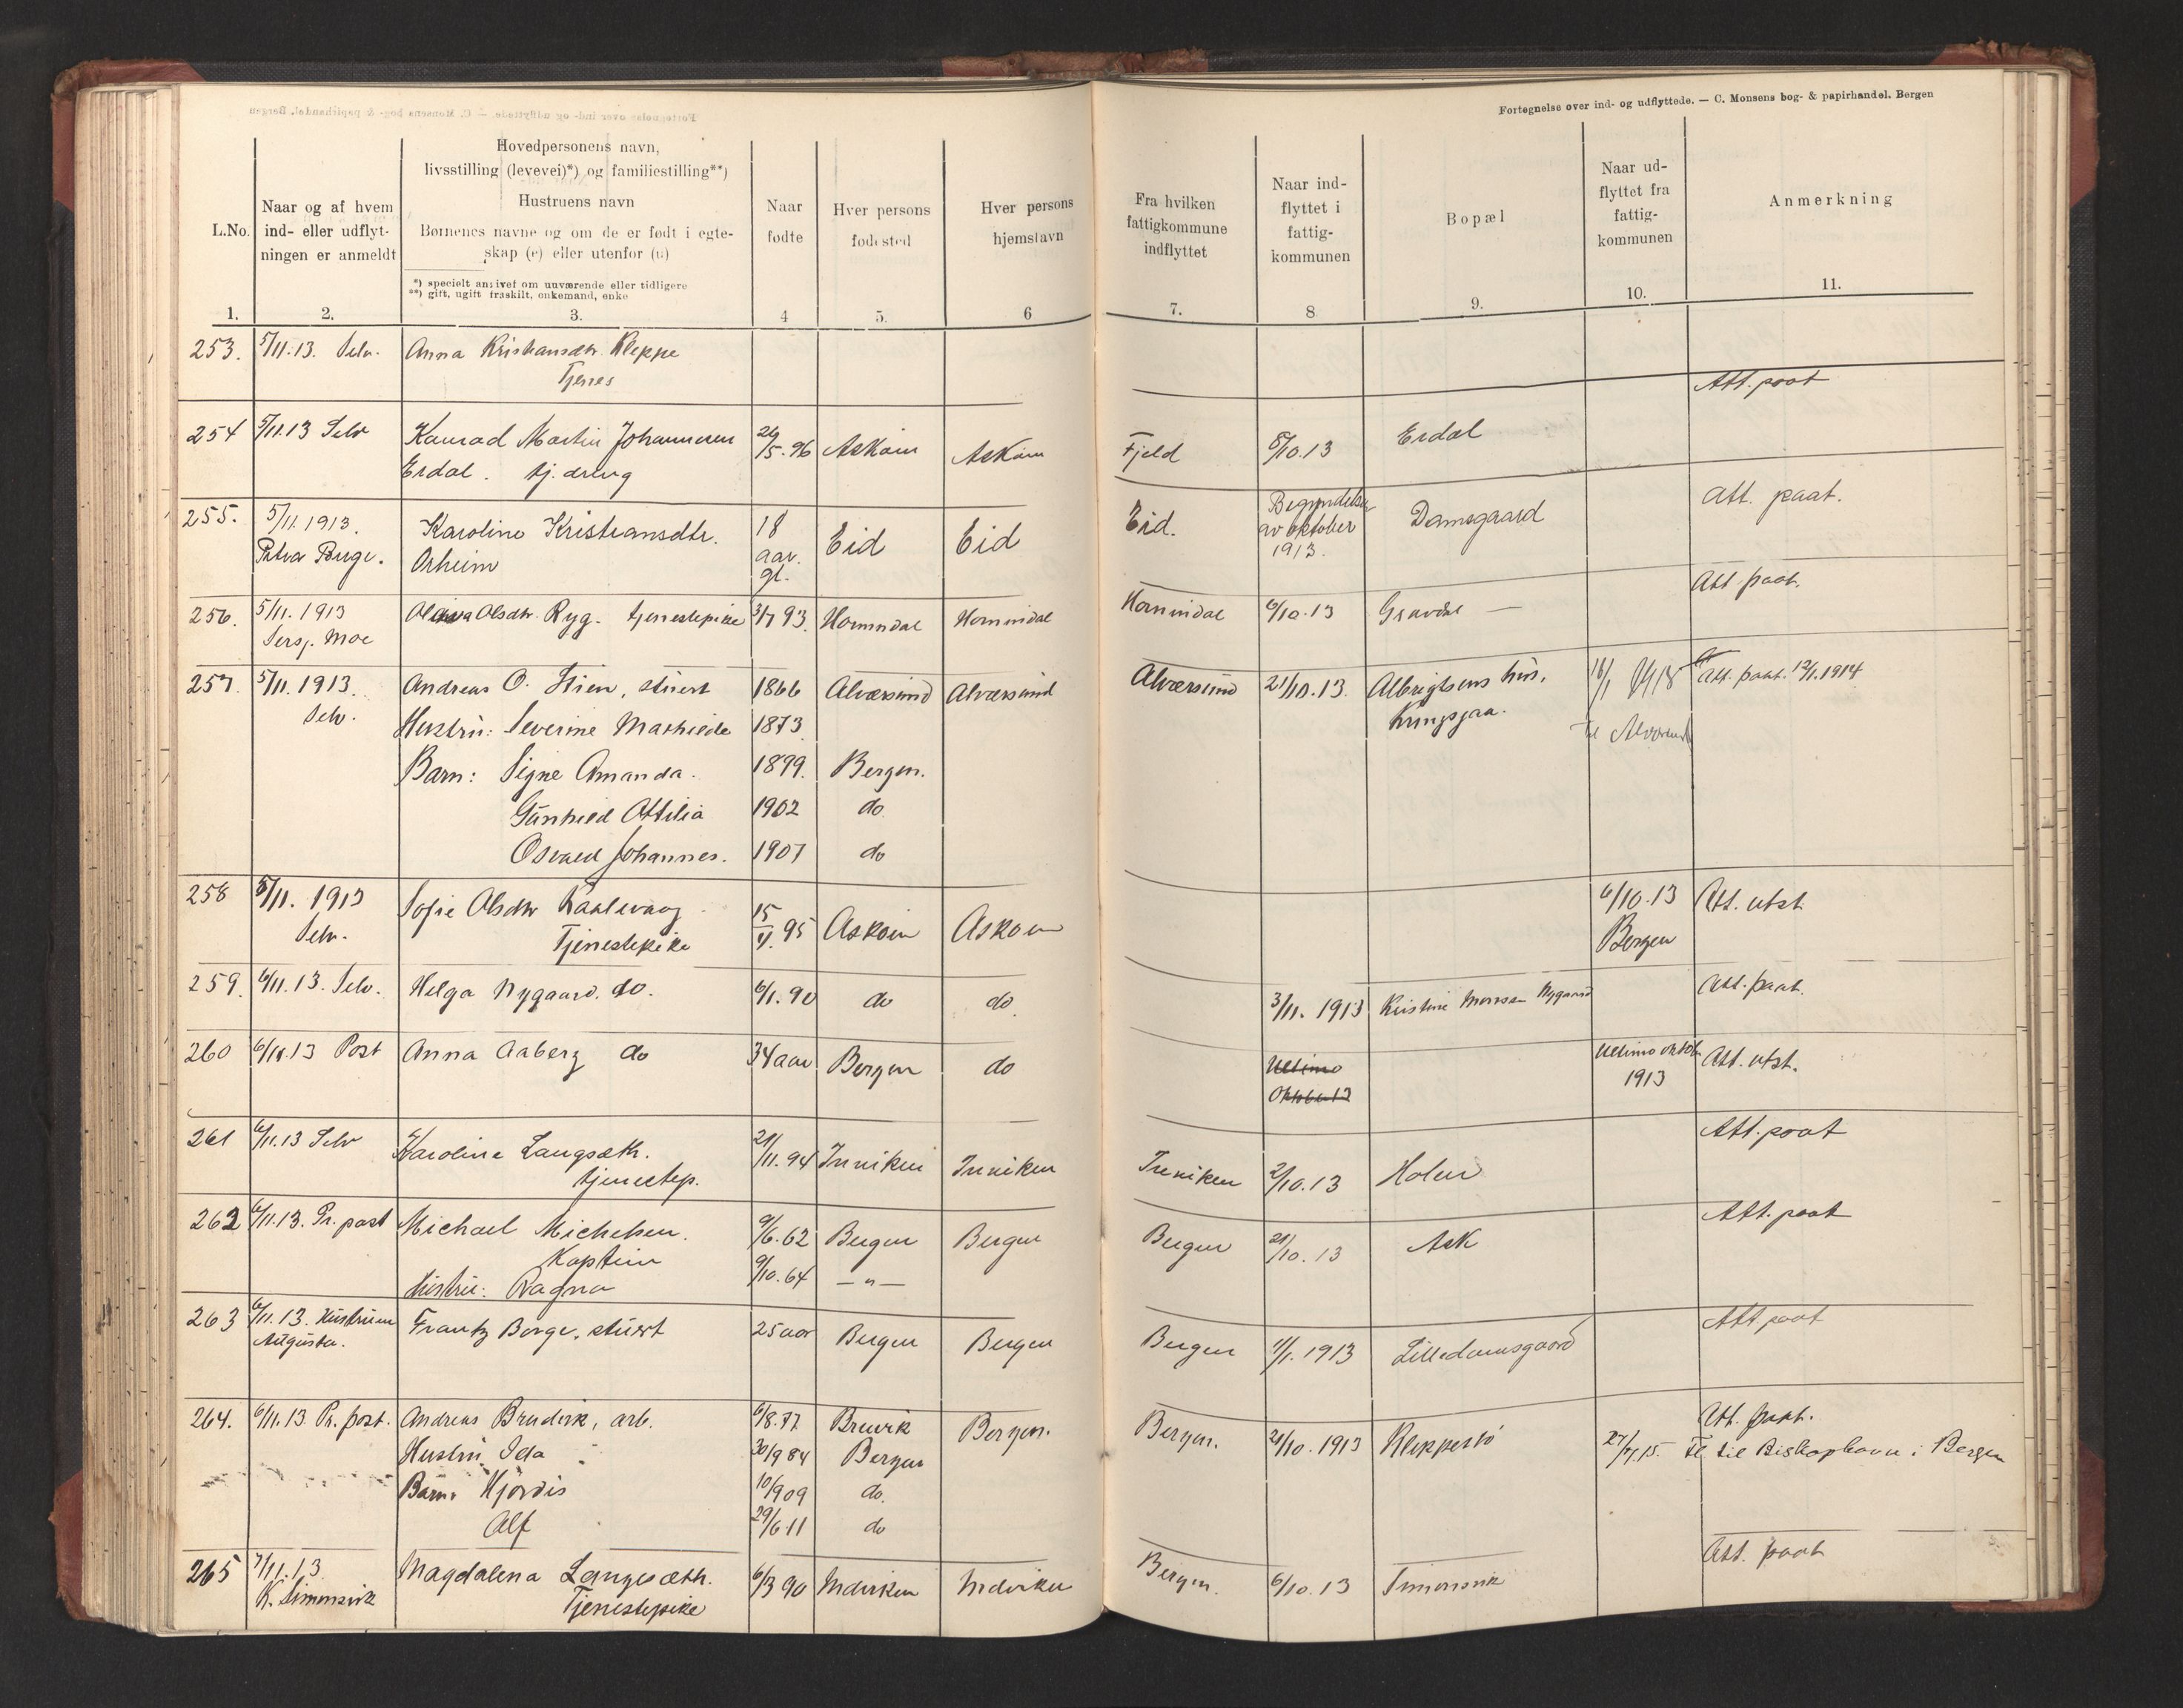 Fortegnelse over ind- og udflyttede. — C. Monsens bog- & papirhandel. Bergen
L.No.
Naar og af hvem
ind- eller udflyt-
ningen er anmeldt
Hovedpersonens navn,
livsstilling (levevei)*) og familiestilling**)
Hustruens navn
Børnenes navne og om de er født i egte-
skap (e) eller utenfor (u)
*) specielt angivet om nuværende eller tidligere
**) gift, ugift fraskilt, enkemand, enke
Naar
fødte
Hver persons
fødested
Hver persons
hjemstavn
Fra hvilken
fattigkommune
indflyttet
Naar ind-
flyttet i
fattig-
kommunen
Bopæl
Naar ud-
flyttet fra
fattig-
kommunen
Anmerkning
1. 2. 3. 4 5. 6 7. 8 9. 10. 11.
253. 5/11.13. Selv. Anna Kristiansdtr. Kleppe
Tjenes
Att. paat
254 5/11.13 Selv Konrad Martin Johannesen 26/5.96 Askøen Askøen Fjeld 8/10.13 Erdal
Erdal. tj. dreng
Att. paat.
255. 5/11.1913. Karoline Kristiansdtr. 18 Eid Eid Eid. Begyndelsen Damsgaard
Orheim aar. av oktober
gl. 1913.
Att paat.
256. 5/11.1913 Olsdtr. Ryg. tjenestepike 3/7 93. Hornindal Hornindal Hornindal 6/10.13 Gravdal —
Sersj. Moe
257. 5/11.1913. Andreas O. Stien, stuert 1866 Alversund Alversund Alversund 21/10.13. Albrigtsens hus, 16/1 Att. paat. 12/1.1914
Selv. Hustru: Severine Mathilde 1873 Kringsjaa. til Alversund
Barn: Signe Amanda. 1899. Bergen.
Gunhild Ottilia 1902 do
Osvald Johannes. 1907 do
258 5/11. 1913 Sofie Olsdtr 15/ .95 Askøen Askøen 6/10.13 Att. utst.
Selv. Tjenestepike Bergen
259. 6/11.13. Selv. Helga Nygaard. do. 6/1.90 do do. 3/11. 1913 Kristine Monsen Nygaard Att. paat.
260 6/11.13 Post Anna Aaberg do 34 aar Bergen do Ultimo Ultimo oktob. Att. utst.
Oktober 13 1913
261 6/11.13 Selv Karoline Langsæth. 21/11.94 Inviken Inviken Inviken 2/10.13 Holen Att. paat
tjenestep.
262 6/11.13. Pr. post Michael Michelsen. 9/6.62 Bergen Bergen Bergen 21/10.13 Ask Att. paat
Kaptein
Hustru: Ragna 9/10.64 — " —
263 6/11.13. Hustruen Frantz Borge. stuert 25 aar Bergen Bergen Bergen 1/1. 1913 Lilledamsgaard Att paat
Augusta.
264. 6/11.13 Pr. post. Andreas Brudvik, arb. 6/8.77 Bruvik Bergen. Bergen. 21/10.1913 Kleppestø Att. paat.
Hustru Ida 30/9 84 Bergen 27/7.15. Fl. til Biskopshavn i Bergen
Barn: Hjørdis 10/9 09 do.
Alf 29/6 11 do
265 7/11.13. Magdalena Langesæth. 6/3 90 Indviken Indviken Bergen. 6/10.13 Simonsvik Att. paat
K. Simonsvik Tjenestepike